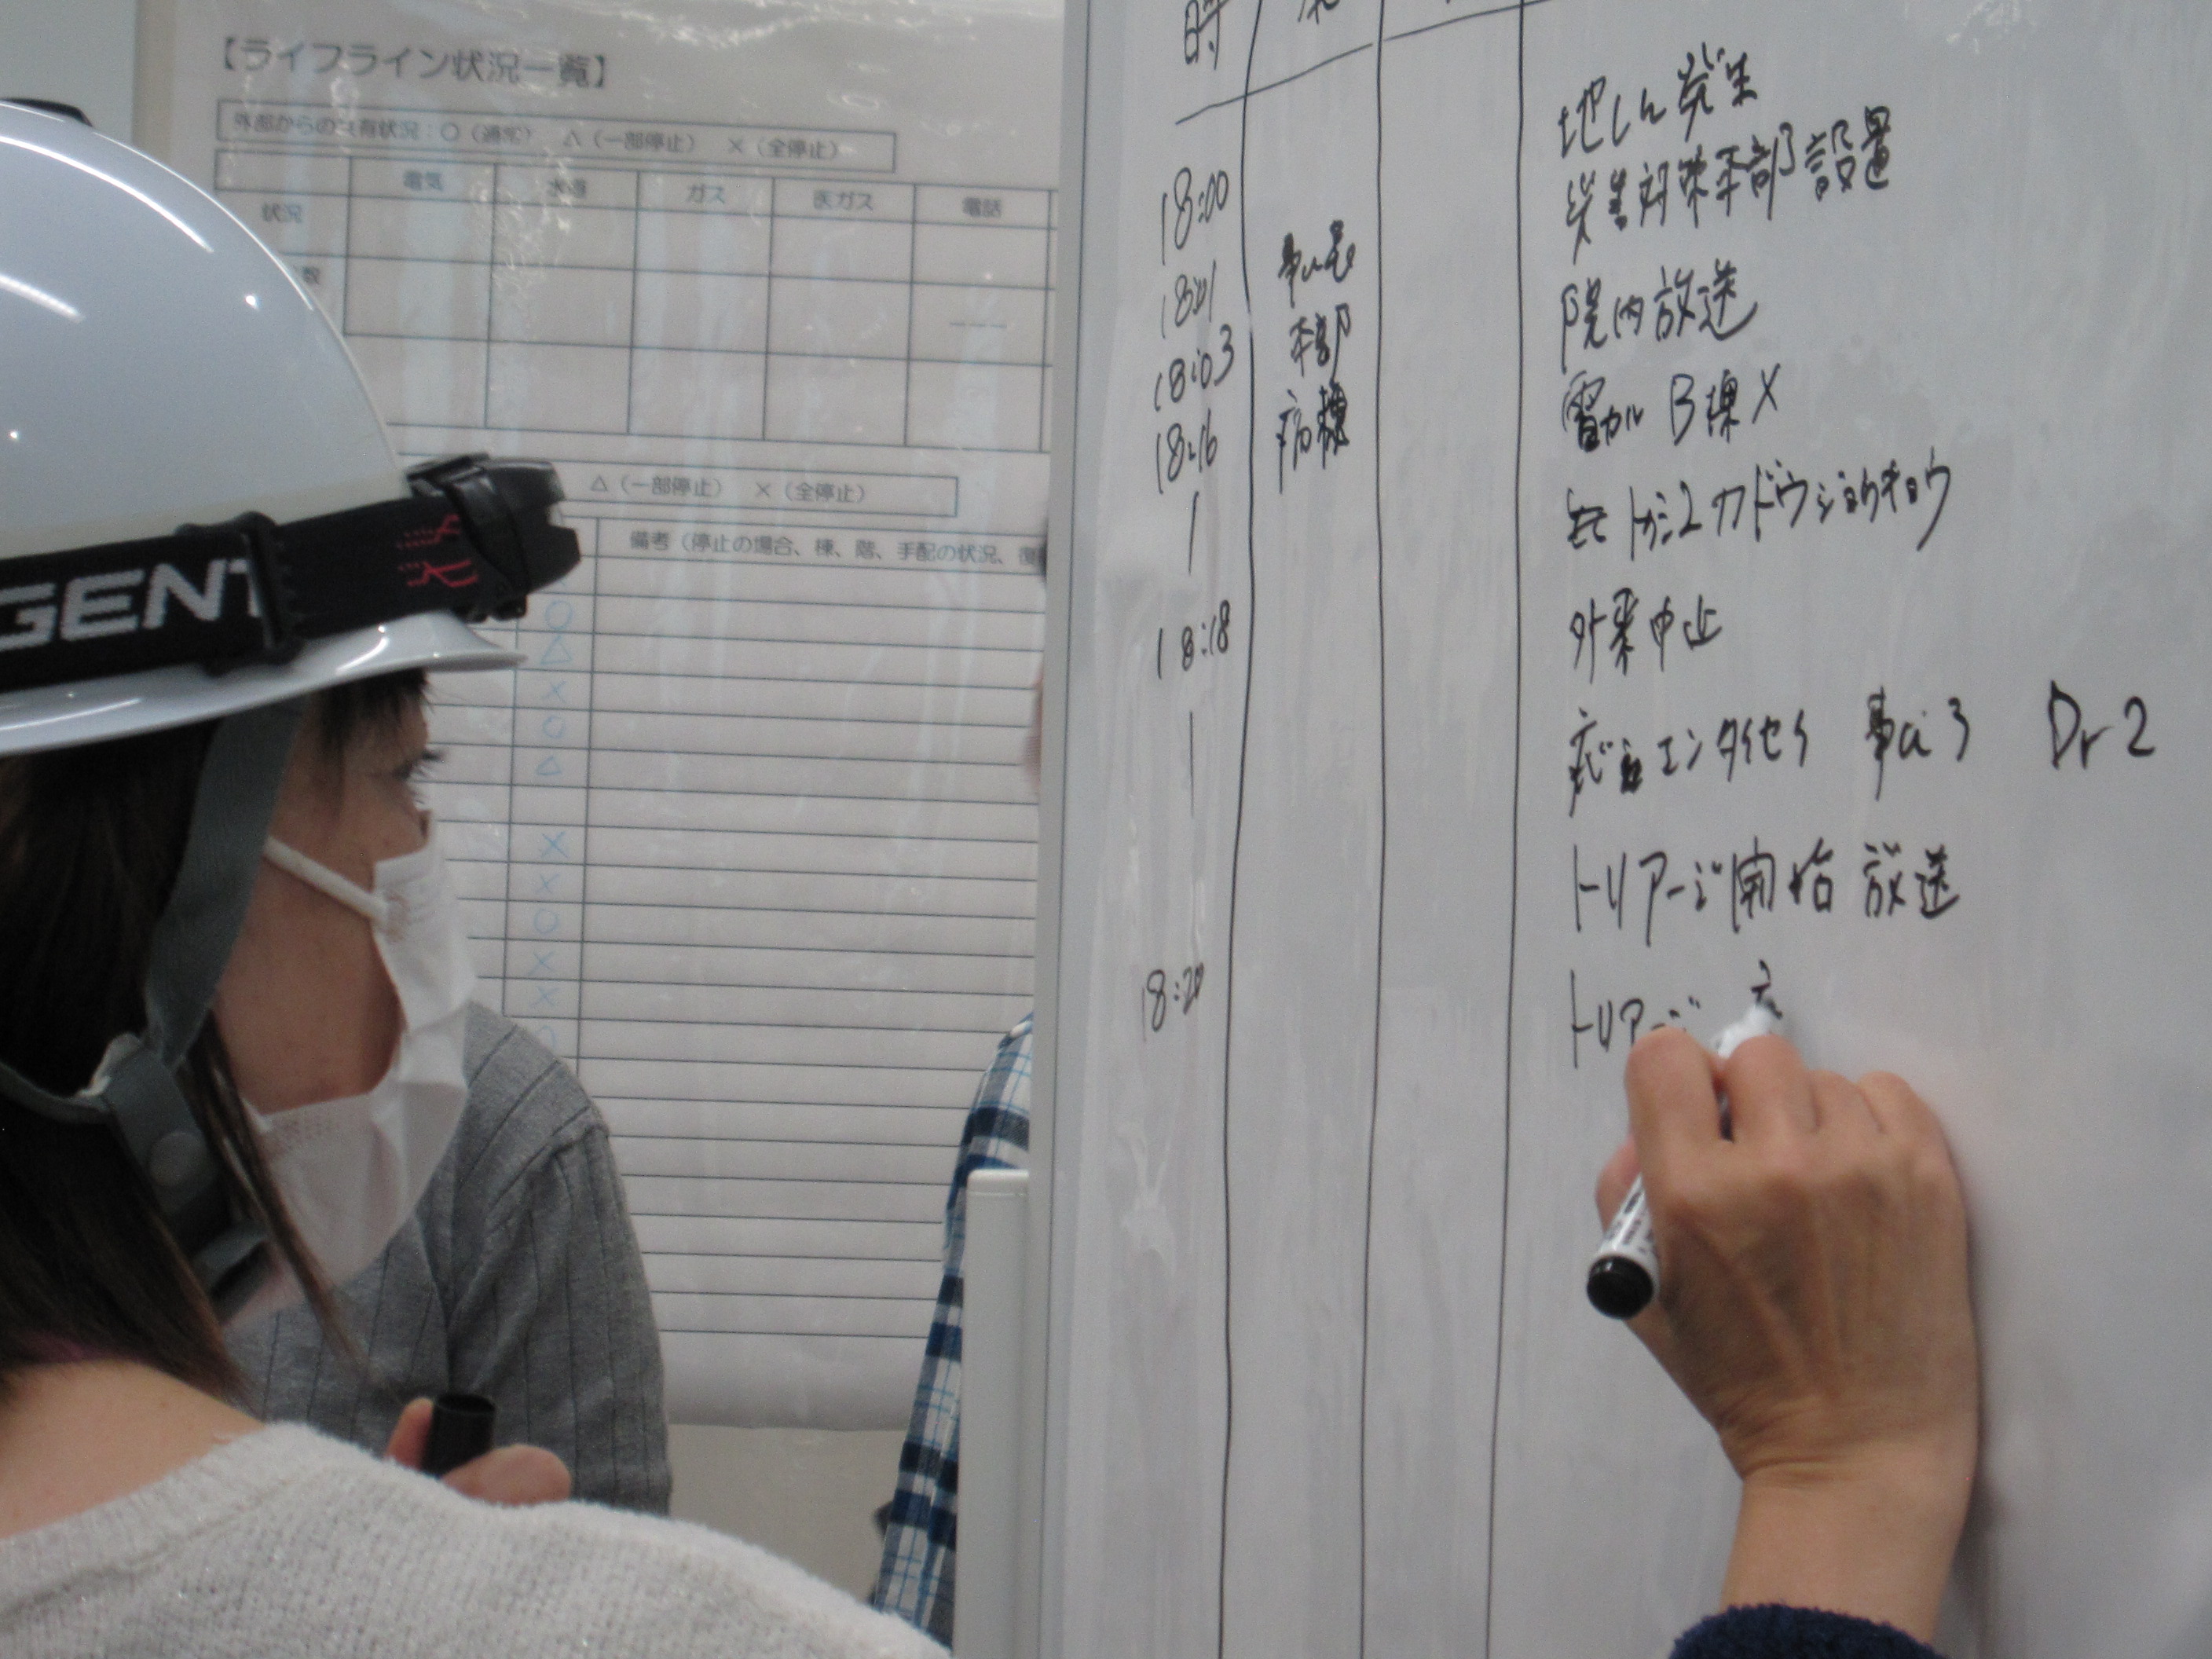 【ライフライン状況一覧】
外部からの共有状況:○(通常) △(一部停止) ×(全停止)
電気 水道 ガス 医ガス 電話
状況
数
△(一部停止) ×(全停止)
備考(停止の場合、棟、階、手配の状況、復
○
△
×
○
△
×
×
○
×
×
○
GENT
時
地しん発生
18:00 災害対策本部設置
18:01 院内放送
18:03 本部 電カル B棟×
18:16 病棟 カドウジョウキョウ
18:18 外来中止
エンタイセイ 3 Dr 2
トリアージ開始 放送
18:20 トリアージ